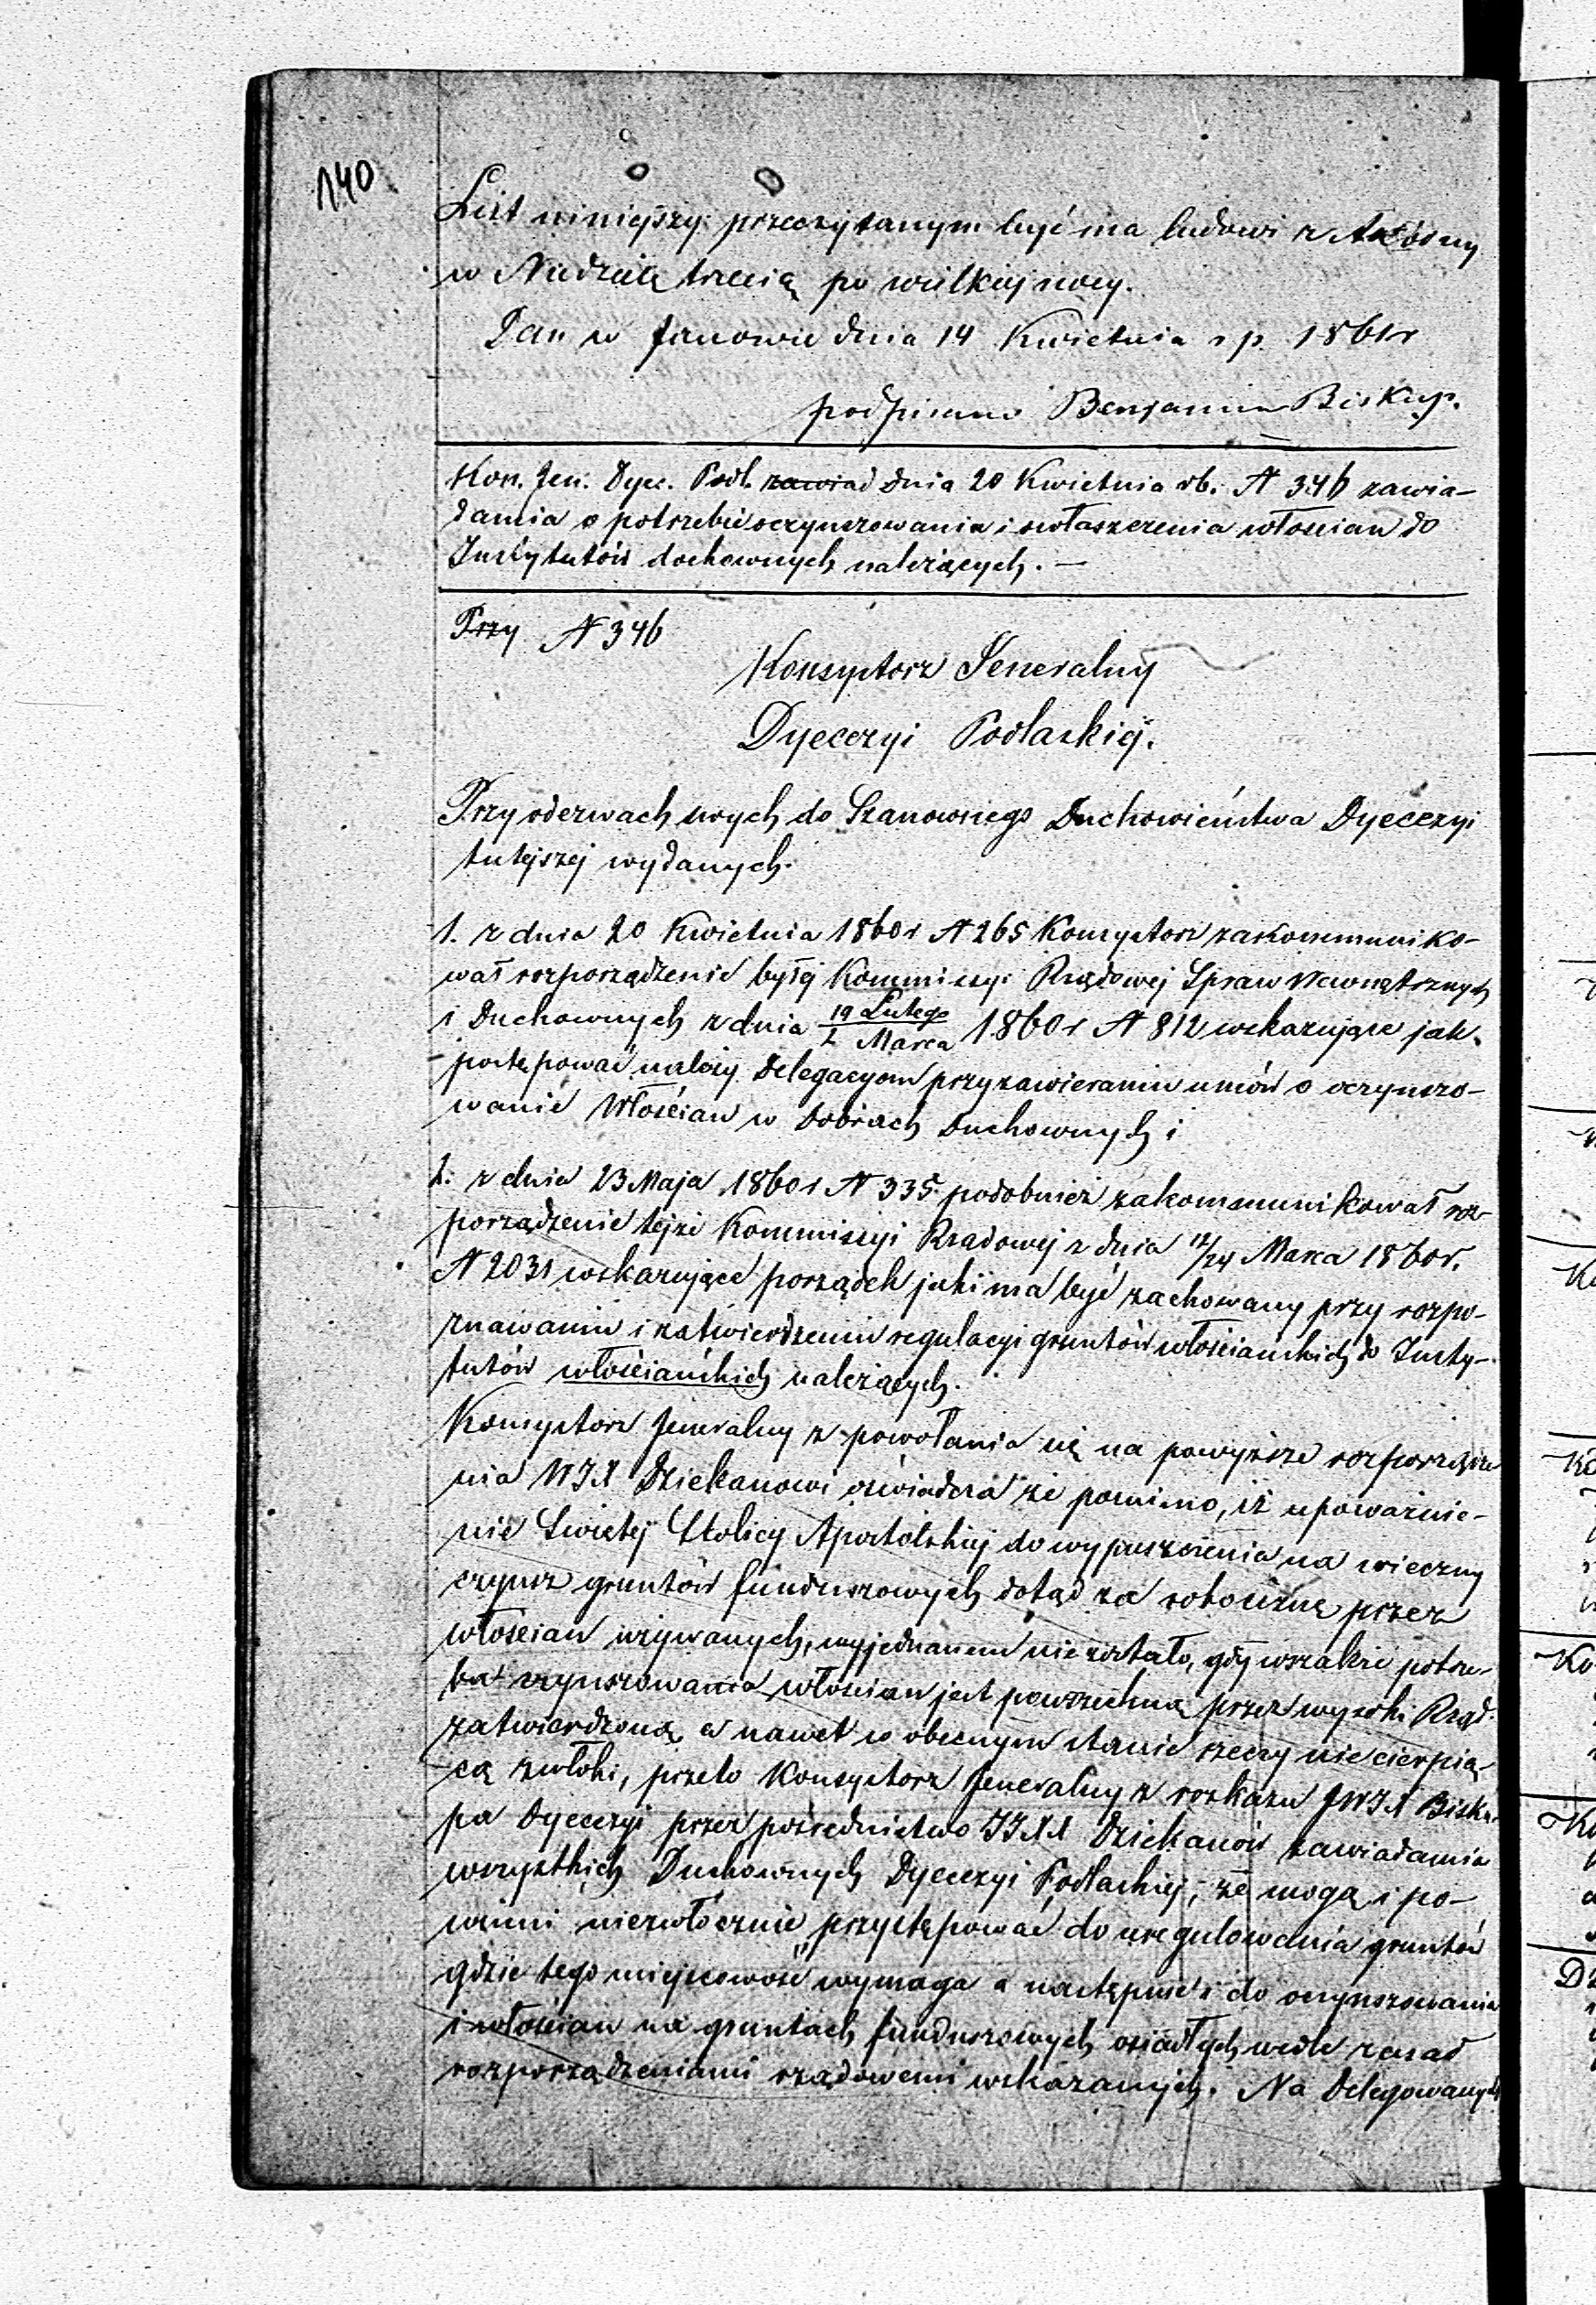 140
List niniejszy przeczytanym być ma ludowi z Ambony
w Niedzielę trzecią po wielkiejnocy.
Dan w Janowie dnia 14 Kwietnia r p. 1861r
podpisano Benjamin Biskup.
Kon. Jen. Dyec. Podl. zawiad dnia 20 Kwietnia rb. N 346 zawia-
damia o potrzebie oczynszowania i uwłaszczenia włościan do
Instytutów duchownych należących. —
Przy N 346
Konsystorz Jeneralny
Dyecezyi Podlaskiej.
Przy odezwach swych do Szanownego Duchowieństwa Dyecezyi
tutejszej wydanych.
1. z dnia 20 Kwietnia 1860r N 265 Konsystorz zakommuniko-
wał rozporządzenie byłej Kommissyi Rządowej Spraw Wewnętrznych
i Duchownych z dnia 19 Lutego/2 Marca 1860r N 812 wskazujące jak
postępować należy Delegacyom przy zawieraniu umów o oczynszo-
wanie Włościan w Dobrach Duchownych i
2. z dnia 23 Maja 1860r N 335 podobnież zakommunikował roz-
porządzenie tejże Kommissyi Rządowej z dnia 12/24 Marca 1860r.
N 2031 wskazujące porządek jaki ma być zachowany przy rozpo-
znawaniu i zatwierdzeniu regulacyi gruntów włościańskich do Insty-
tutów włościańskich należących.
Konsystorz Jeneralny z powołania się na powyższe rozporządze
nia WJX Dziekanowi oświadcza że pomimo, iż upoważnie-
nie Świętej Stolicy Apostolskiej do wypuszczenia na wieczny
czynsz gruntów funduszowych dotąd za robociznę przez
włościan używanych, wyjednanem nie zostało, gdy wszakże potrze-
ba oczynszowania włościan jest powszechną przez wysoki Rząd
zatwierdzoną a nawet w obecnym stanie rzeczy nie cierpią-
cą zwłoki, przeto Konsystorz Jeneralny z rozkazu JWJX Bisku-
pa Dyecezyi przez pośrednictwo JJXX Dziekanów zawiadamia
wszystkich Duchownych Dyecezyi Podlaskiej, że mogą i po-
winni niezwłocznie przystępować do uregulowania gruntów
gdzie tego miejscowość wymaga a następnie i do oczynszowania
i włościan na gruntach funduszowych osiadłych wedle zasad
rozporządzeniami rządowemi wskazanych. Na Delegowanych